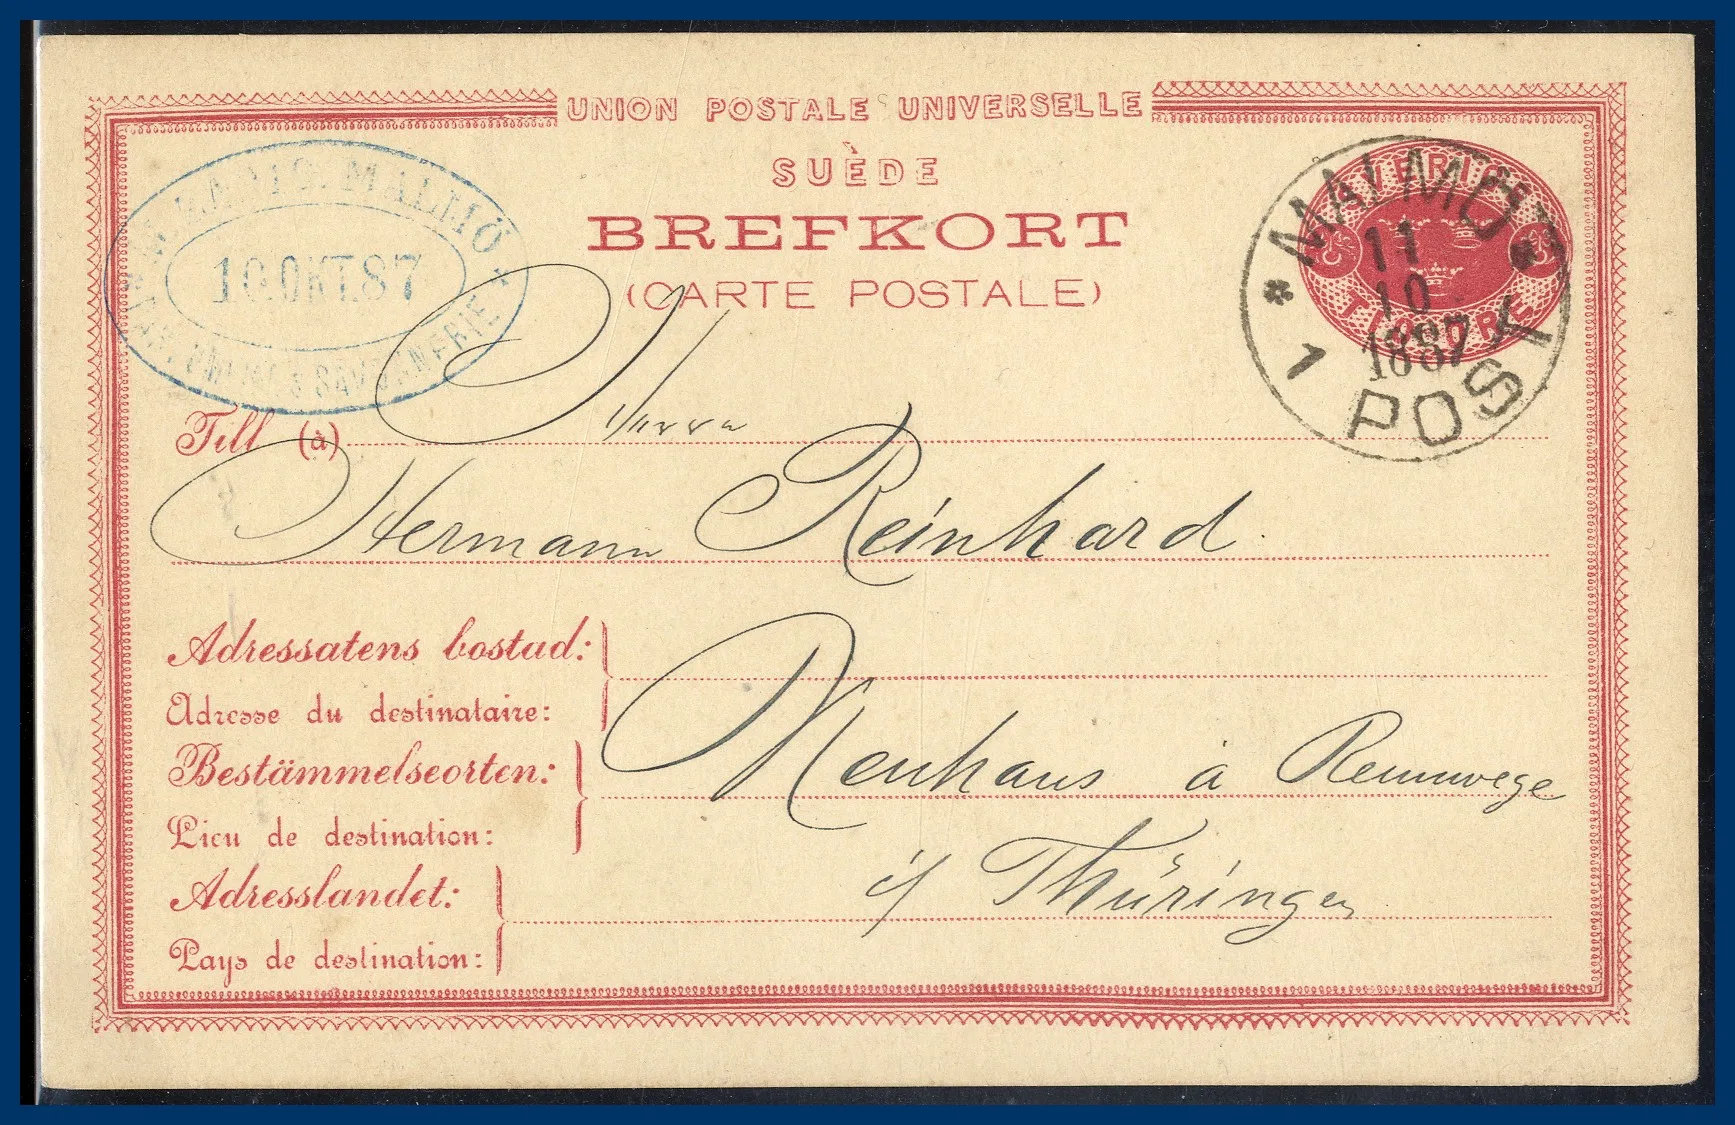 UNION POSTALE UNIVERSELLE
SUÈDE
BREFKORT
(CARTE POSTALE)
MALMÖ
10.OKT.87
SAVONNERIE
SVERIGE
TIO ÖRE
MALMÖ 1
11
10
1887
POST
Till (à) Herrn
Hermann Reinhard.
Adressatens bostad:
Adresse du destinataire:
Bestämmelseorten: Neuhaus a Rennwege
Lieu de destination:
i/ Thüringen
Adresslandet:
Pays de destination: